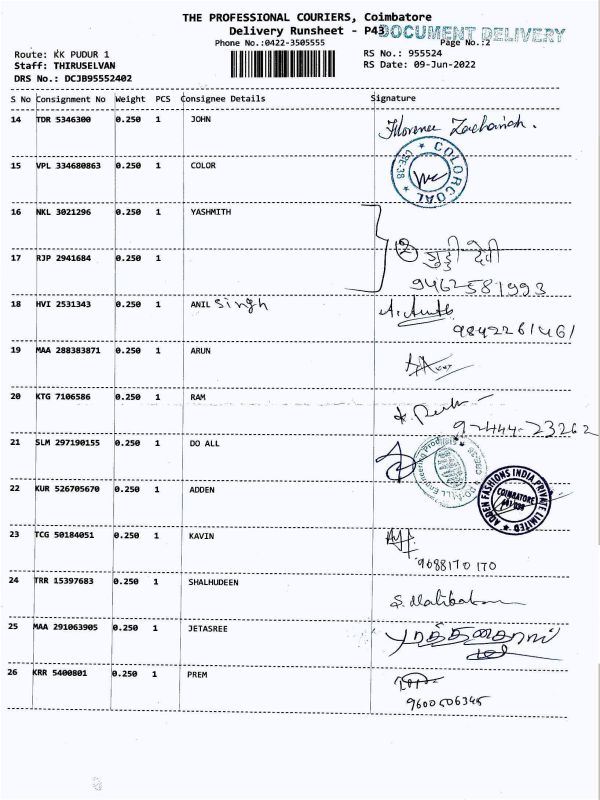 THE PROFESSIONAL COURIERS, Coimbatore
Delivery Runsheet - P43
DOCUMENT DELIVERY
Phone No.:0422-3505555
Page No.:2
Route: KK PUDUR 1
RS No.: 955524
Staff: THIRUSELVAN
RS Date: 09-Jun-2022
DRS No.: DCJB95552402
S No Consignment No Weight PCS Consignee Details Signature
14 TDR 5346300 0.250 1 JOHN Florence Zachariah.
15 VPL 334680863 0.250 1 COLOR
COLORCOAL * CBE-38 *
16 NKL 3021296 0.250 1 YASHMITH
17 RJP 2941684 0.250 1
2 गुड्डी देवी
9462581993
18 HVI 2531343 0.250 1 ANIL Singh
9842261461
19 MAA 288383871 0.250 1 ARUN
20 KTG 7106586 0.250 1 RAM
92444-23262
21 SLM 297190155 0.250 1 DO ALL
22 KUR 526705670 0.250 1 ADDEN
ADDEN FASHIONS INDIA PRIVATE LIMITED *
COIMBATORE
23 TCG 50184051 0.250 1 KAVIN
9688170170
24 TRR 15397683 0.250 1 SHALHUDEEN
25 MAA 291063905 0.250 1 JETASREE
26 KRR 5400801 0.250 1 PREM
9600506345